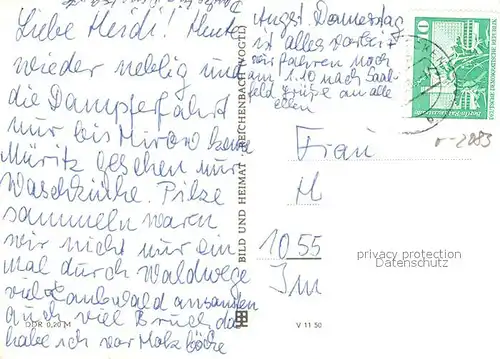 Liebe Heidi! Heute
wieder neblig und
die Dampferfahrt
nur bis Mirow keine
Müritz gesehen nur
Waschküche. Pilze
sammeln waren
wir nicht nur ein
mal durch Waldwege
viel Laubwald
auch viel Bruch da
habe ich vor
Angst. Donnerstag
ist alles vorbei
wir fahren noch
am 1.10 nach Saal-
feld grüße an alle
BILD UND HEIMAT · REICHENBACH (VOGTL)
10
Frau
M
1055
Im
privacy protection
Datenschutz
DDR 0,20 M
V 11 50